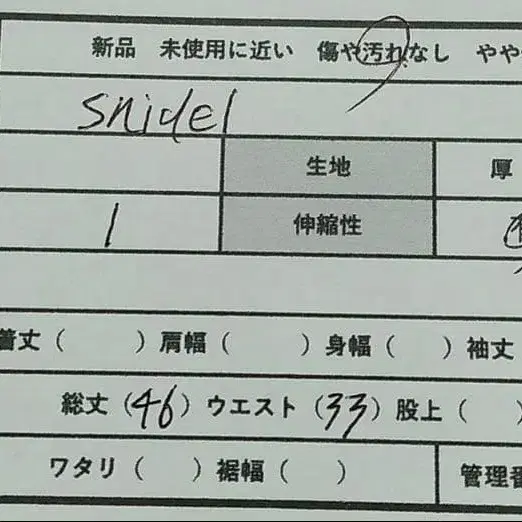 新品 未使用に近い 傷や汚れなし やや
snidel
生地 厚
1 伸縮性
着丈( )肩幅( )身幅( )袖丈
総丈(46)ウエスト(33)股上( )
ワタリ( )裾幅( ) 管理番